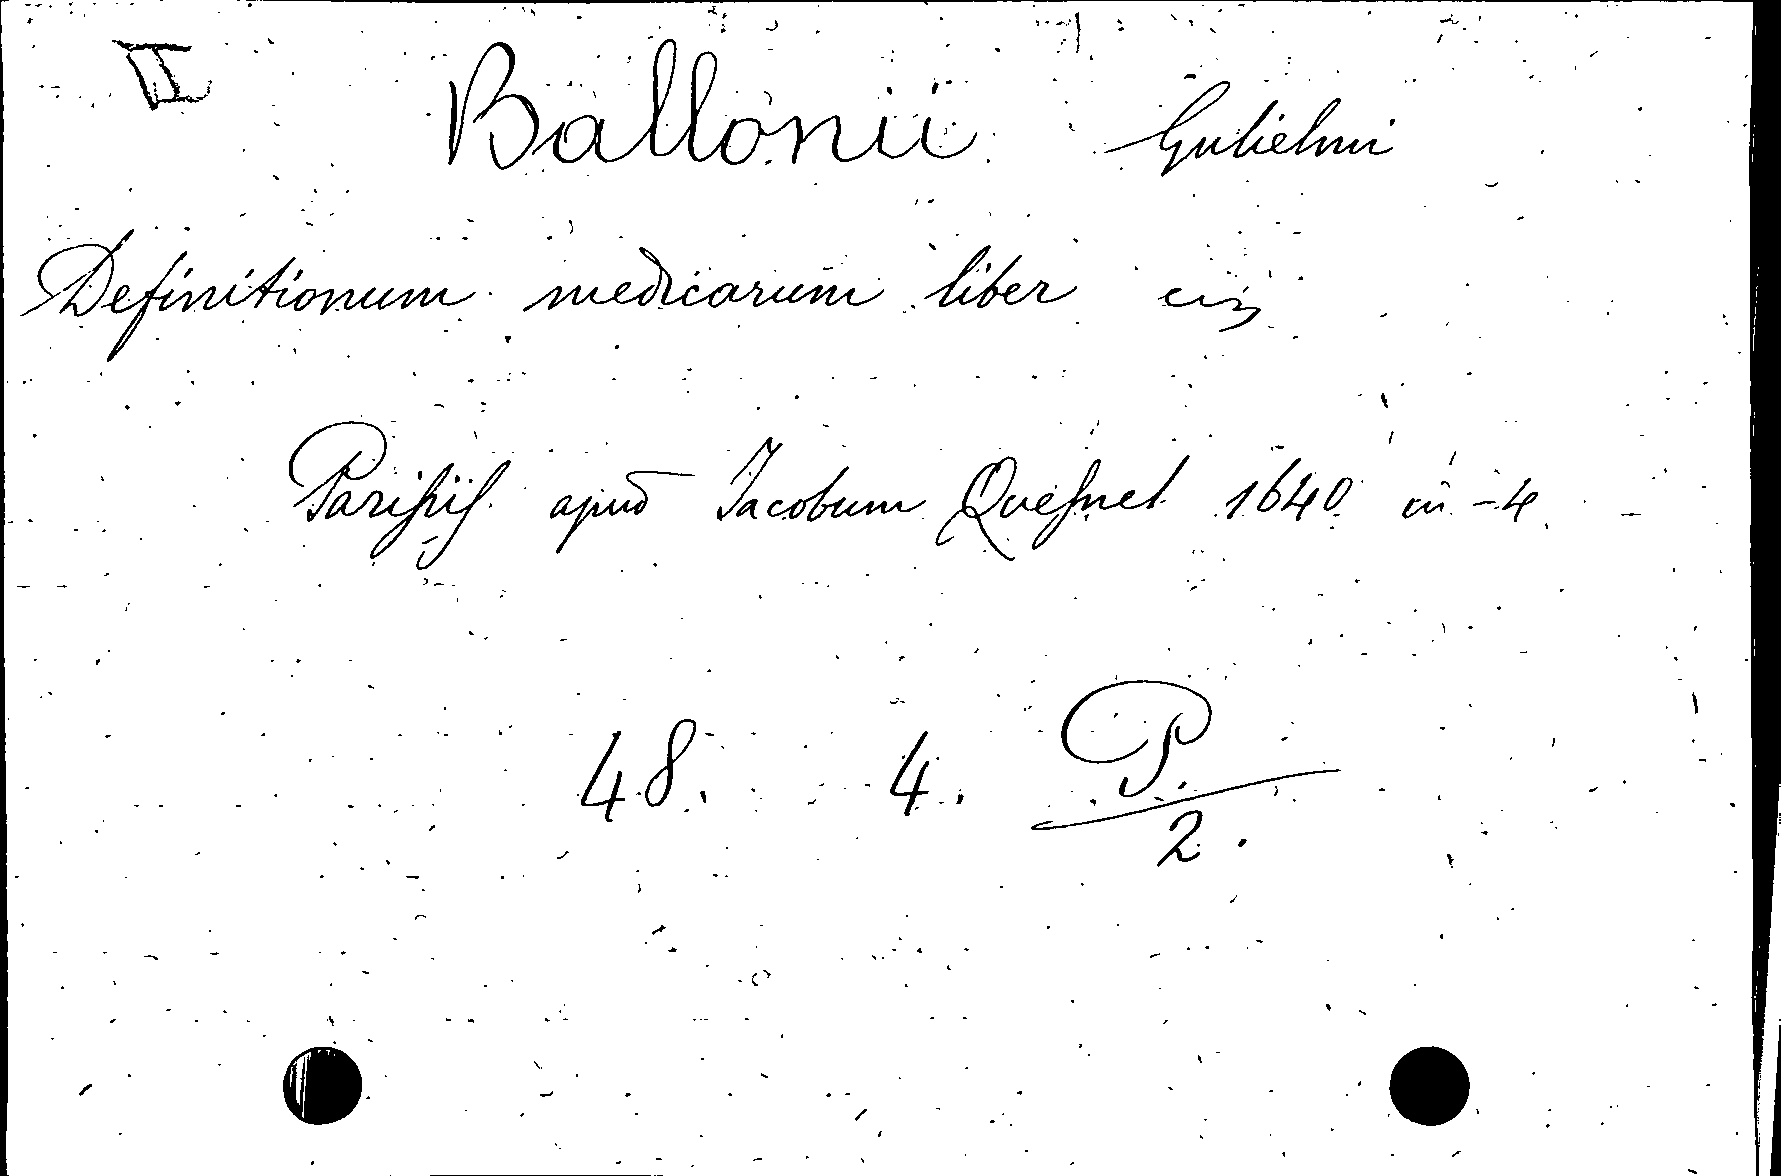 VI Ballonii Gulielmi
Definitionum medicarum liber
Parisiis apud Jacobum Quesnel 1640 in-4
48. 4. P.
2.